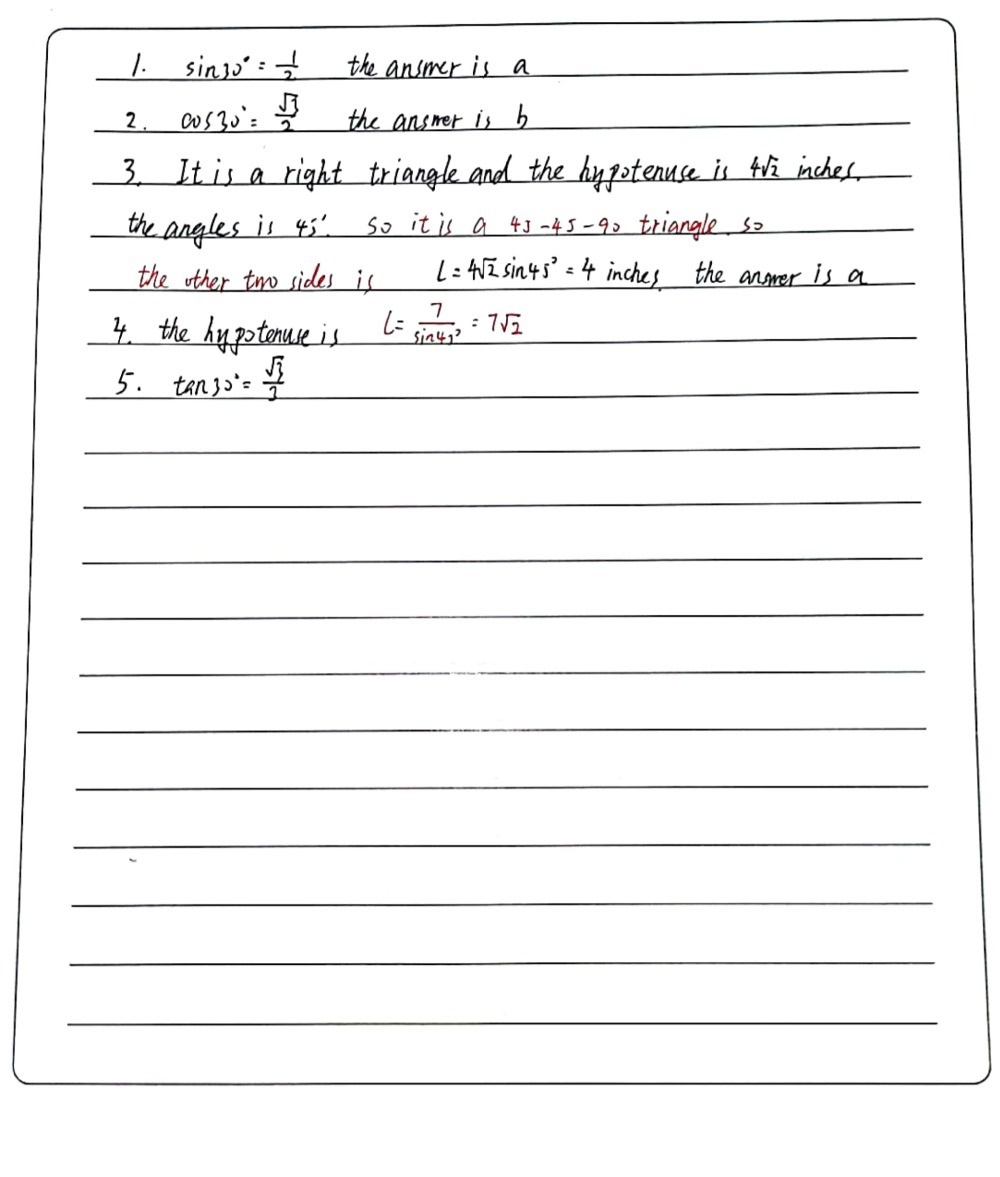 1. sin30° = 1/2 the answer is a
2. cos30° = √3/2 the answer is b
3. It is a right triangle and the hypotenuse is 4√2 inches.
the angles is 45°. so it is a 45-45-90 triangle. so
the other two sides is L = 4√2 sin45° = 4 inches. the answer is a
4. the hypotenuse is L = 7/sin45° = 7√2
5. tan30° = √3/3